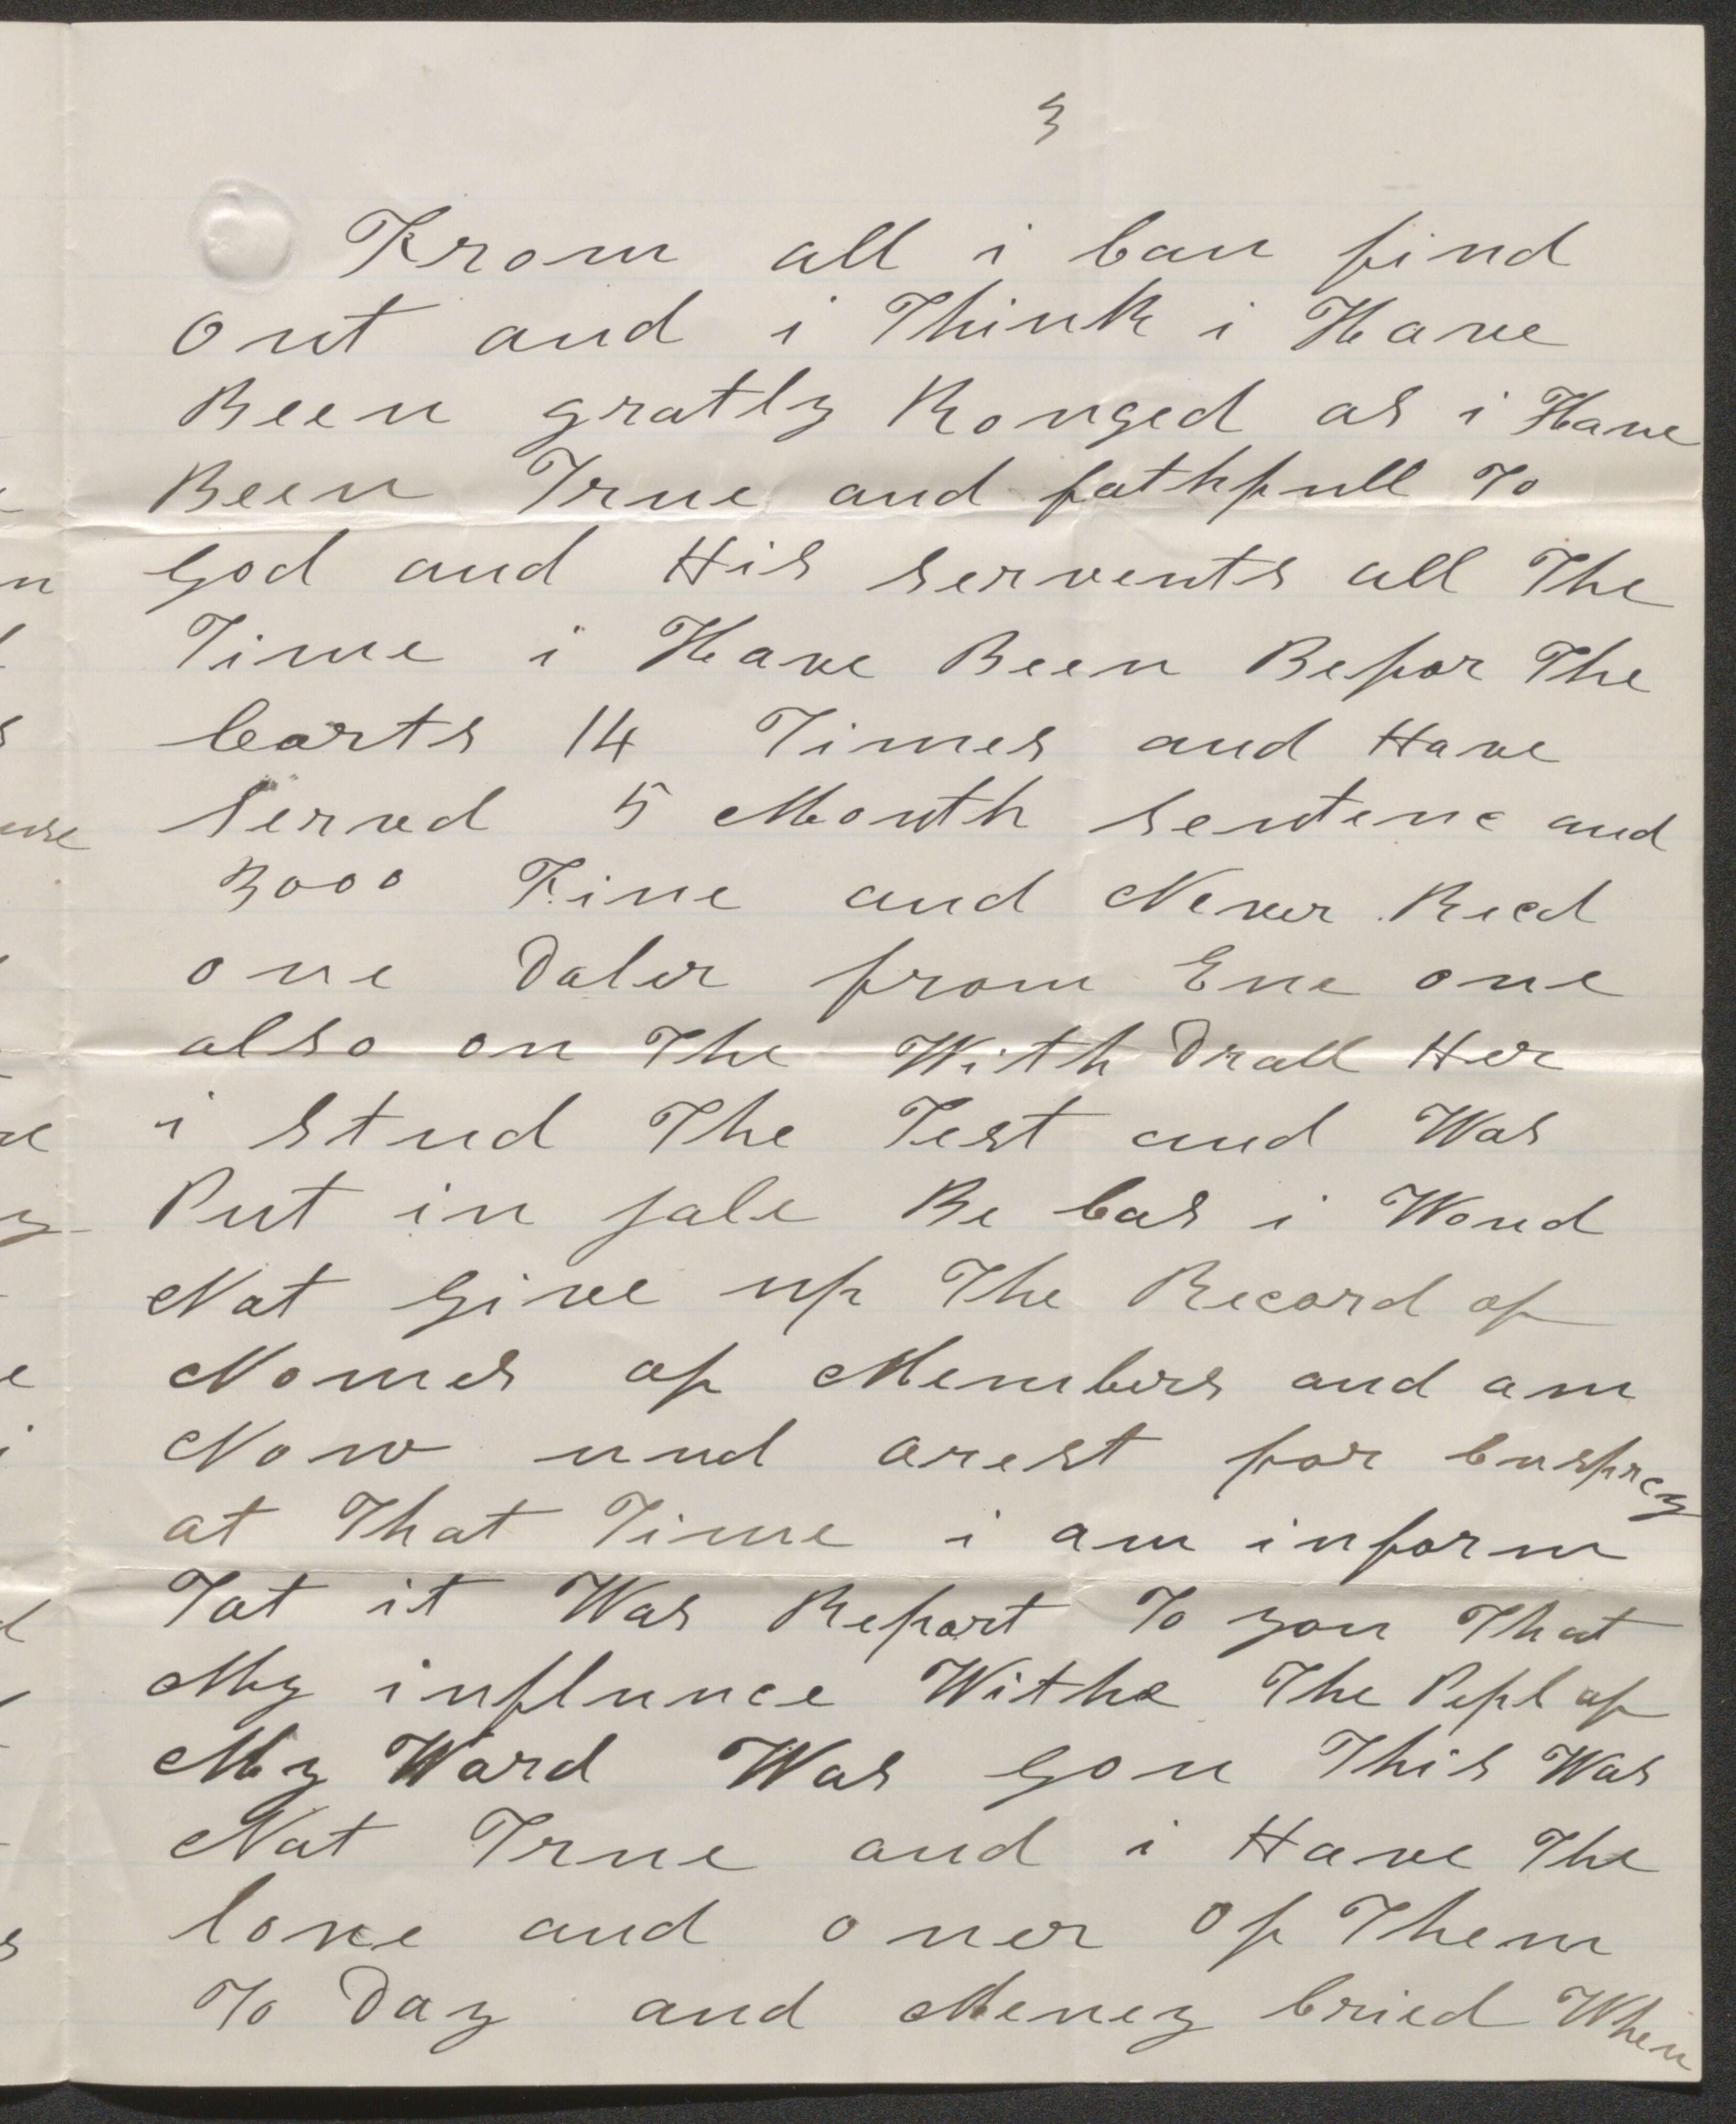 3
From all i Can find
out and i Think i Have
Been gratly Ronged as i Have
Been True and fathfull To
God and His servents all The
Time i Have Been Befor The
Corts 14 Times and Have
Served 5 Month sentenc and
3000 Fine and Never Recd
one Doler from Ene one
also on The With Drall Her
i stud The Test and Was
Put in jale Be Cas i Woud
Not Give up The Record of
Nomes of Members and am
Now und arest for Cusprcy
at That Time i am inform
Tat it Was Report To you That
My influnce Withe The Pepl of
My Ward Was Gon This Was
Not True and i Have The
love and oner of Them
To Day and Meney Cried When